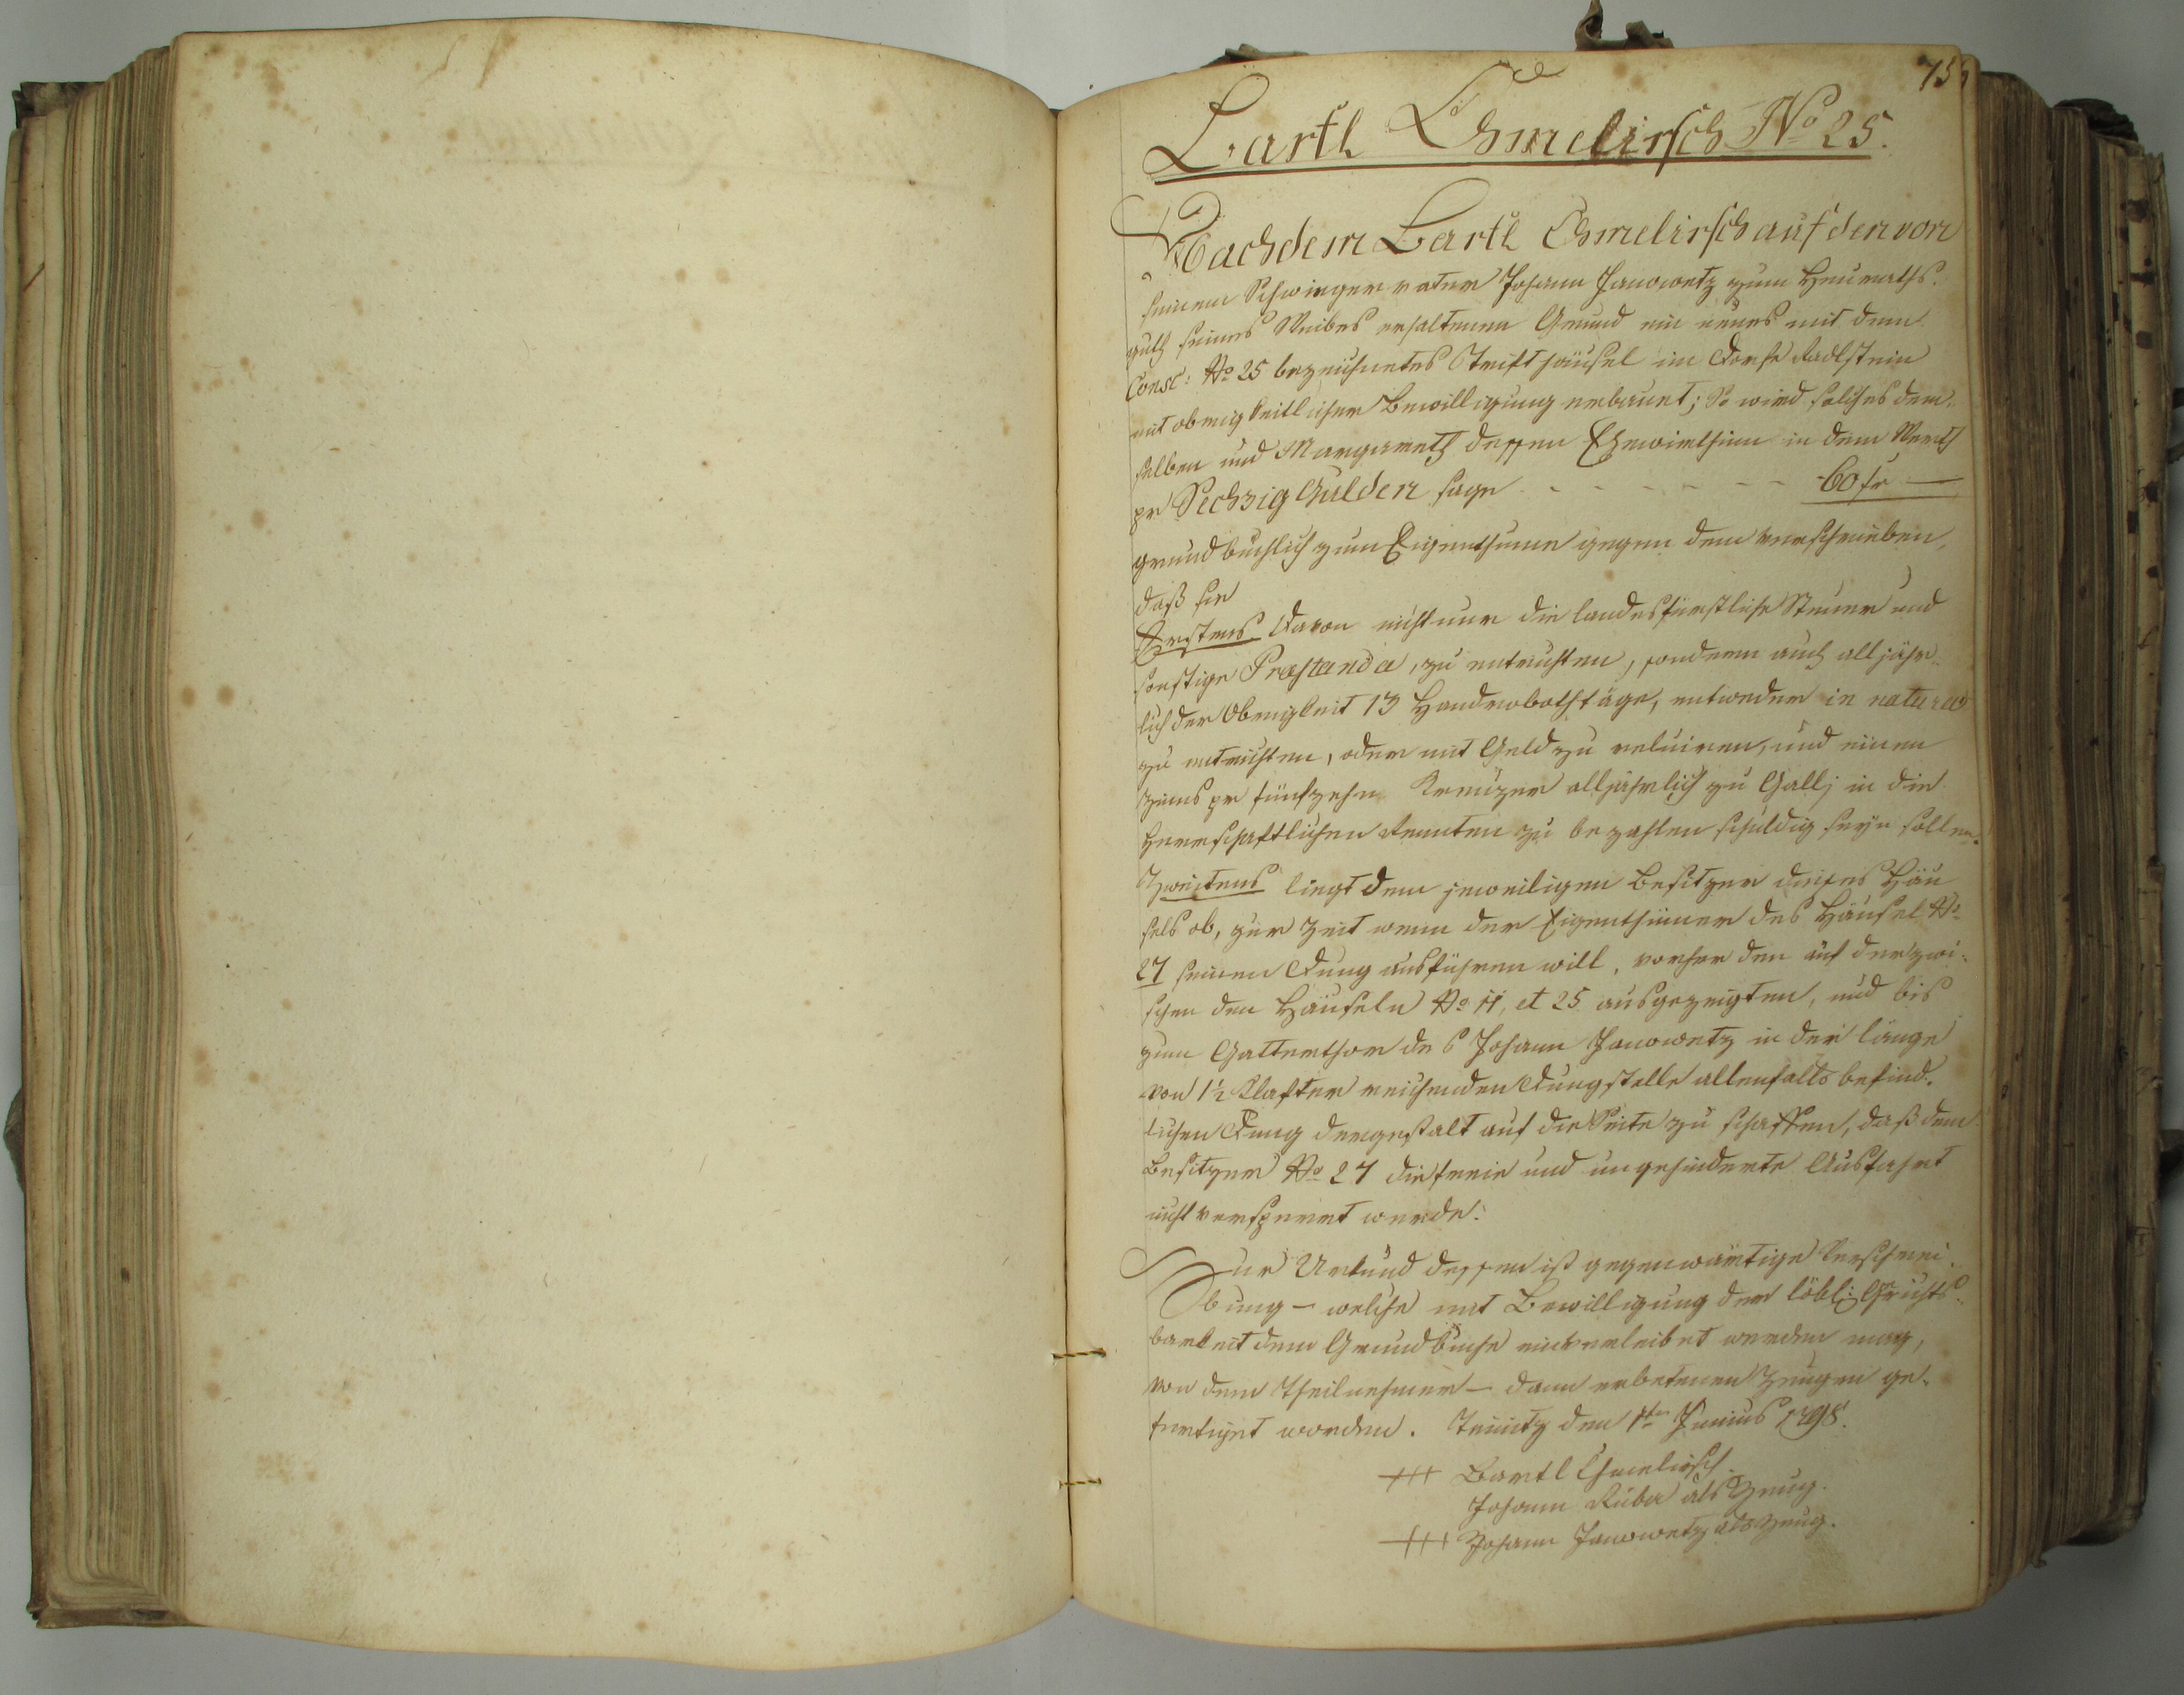 Bartl Chmelirsch No 25.
Nachdem Bartl Chmelirsch auf den von
seinem Schwieger vater Johann Janowetz zum Heuraths-
guth seines Weibes erhaltenen Grund ein neues mit dem
Consc: No 25 bezeichnetes Triftheüsel im Dorfe Radlstein
mit obrigkeitlicher Bewilligung erbauet; So wird solches dem-
selben und Margareth dessen Ehewirthinn in dem Werth
pr Sechzig Gulden sage - - - - - - - 60 fr —
grundbuchlich zum Eigenthume gegen dem verschrieben,
daß sie
Erstens Davon nicht nur die landesfürstliche Steuer und
sonstige Præstanda, zu entrichten, sondern auch alljähr-
lich der Obrigkeit 13 Handrobothstäge, entweder in natura
zu entrichten, oder mit Geld zu reluiren, und einen
Zins pr fünfzehn Kreuzer alljährlich zu Gallj in die
Herrschaftlichen Rennten zu bezahlen schuldig seyn sollen.
Zweitens liegt dem jeweiligen Besitzer dieses Häu
sels ob, zur Zeit wenn der Eigenthümer des Häusel No
27 seinen Dung ausführen will, vorher den auf der zwi-
schen den Häuseln No 11, et 25 ausgezeigten, und bis
zum Gatterthor des Johann Janowetz in der länge
von 1½ Klafter reichenden Dungstelle allenfalls befind-
lichen Dung dergestalt auf die Seite zu schaffen, daß dem
Besitzer No 27 die freie und ungehinderte Ausfahrt
nicht versperret werde.
Zur Urkund dessen ist gegenwärtige Verschrei-
bung – welche mit Bewilligung der löbl: Grichts-
barkeit dem Grundbuche einverleibet werden mag,
von dem Theilnehmer – dann erbetenen Zeugen ge-
fertiget worden. Teinitz den 1ten Junius 1798.
+++ Bartl Chmelirsch
Johann Kuba als Zeug.
+++ Johann Janowetz als Zeug.